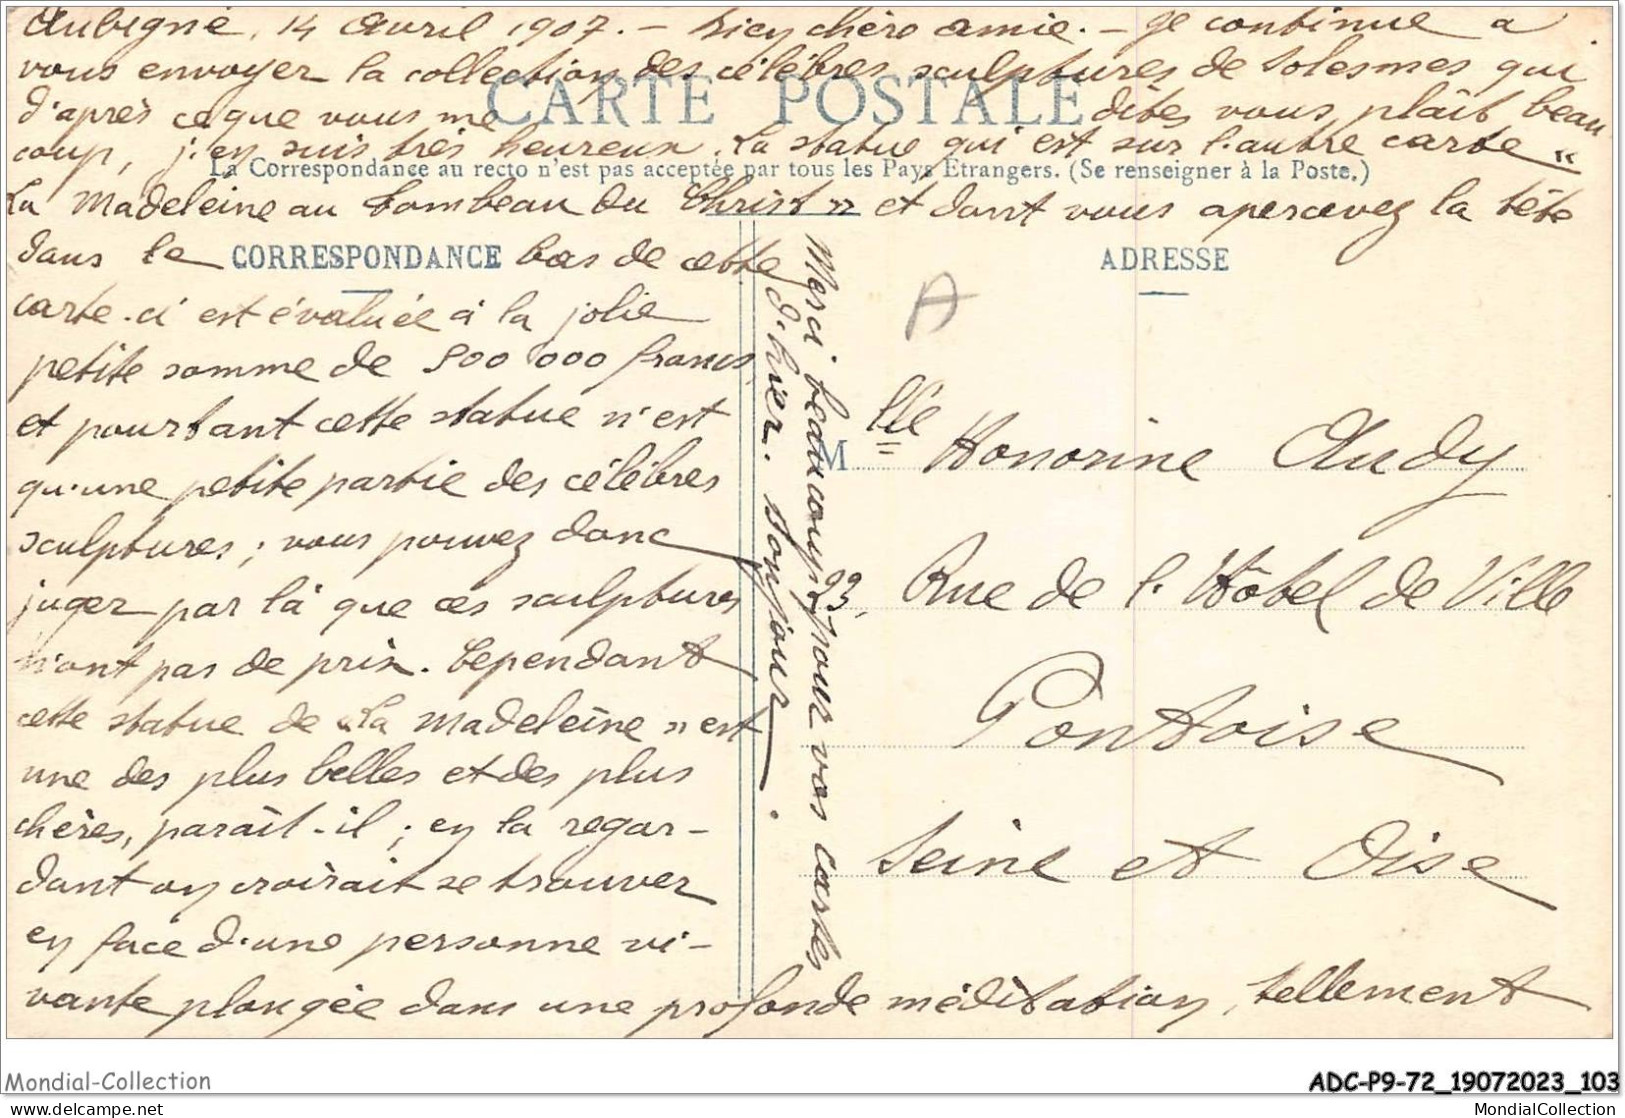 Aubigné, 14 Avril 1907. – Bien chère amie. – Je continue a
vous envoyer la collection des célèbres sculptures de Solesmes qui
CARTE POSTALE
d'après ce que vous me dites vous plaît beau
coup, j'en suis très heureux. La statue qui est sur l'autre carte «
La Correspondance au recto n'est pas acceptée par tous les Pays Etrangers. (Se renseigner à la Poste.)
La Madeleine au Tombeau du Christ » et dont vous apercevez la tête
dans le bas de cette
CORRESPONDANCE
carte-ci est évaluée à la jolie
petite somme de 500 000 francs,
et pourtant cette statue n'est
qu'une petite partie des célèbres
sculptures; vous pouvez donc
juger par là que ces sculptures
n'ont pas de prix. Cependant
cette statue de «La Madeleine» est
une des plus belles et des plus
chères, paraît-il; en la regar-
dant on croirait se trouver
en face d'une personne vi-
vante plongée dans une profonde méditation, tellement
Merci beaucoup pour vos cartes
d'hier. Bonjour.
ADRESSE
A
Mlle Honorine Audy
23, Rue de l'Hôtel de Ville
Pontoise
Seine et Oise
Mondial-Collection
ADC-P9-72_19072023_103
https://www.delcampe.net
MondialCollection